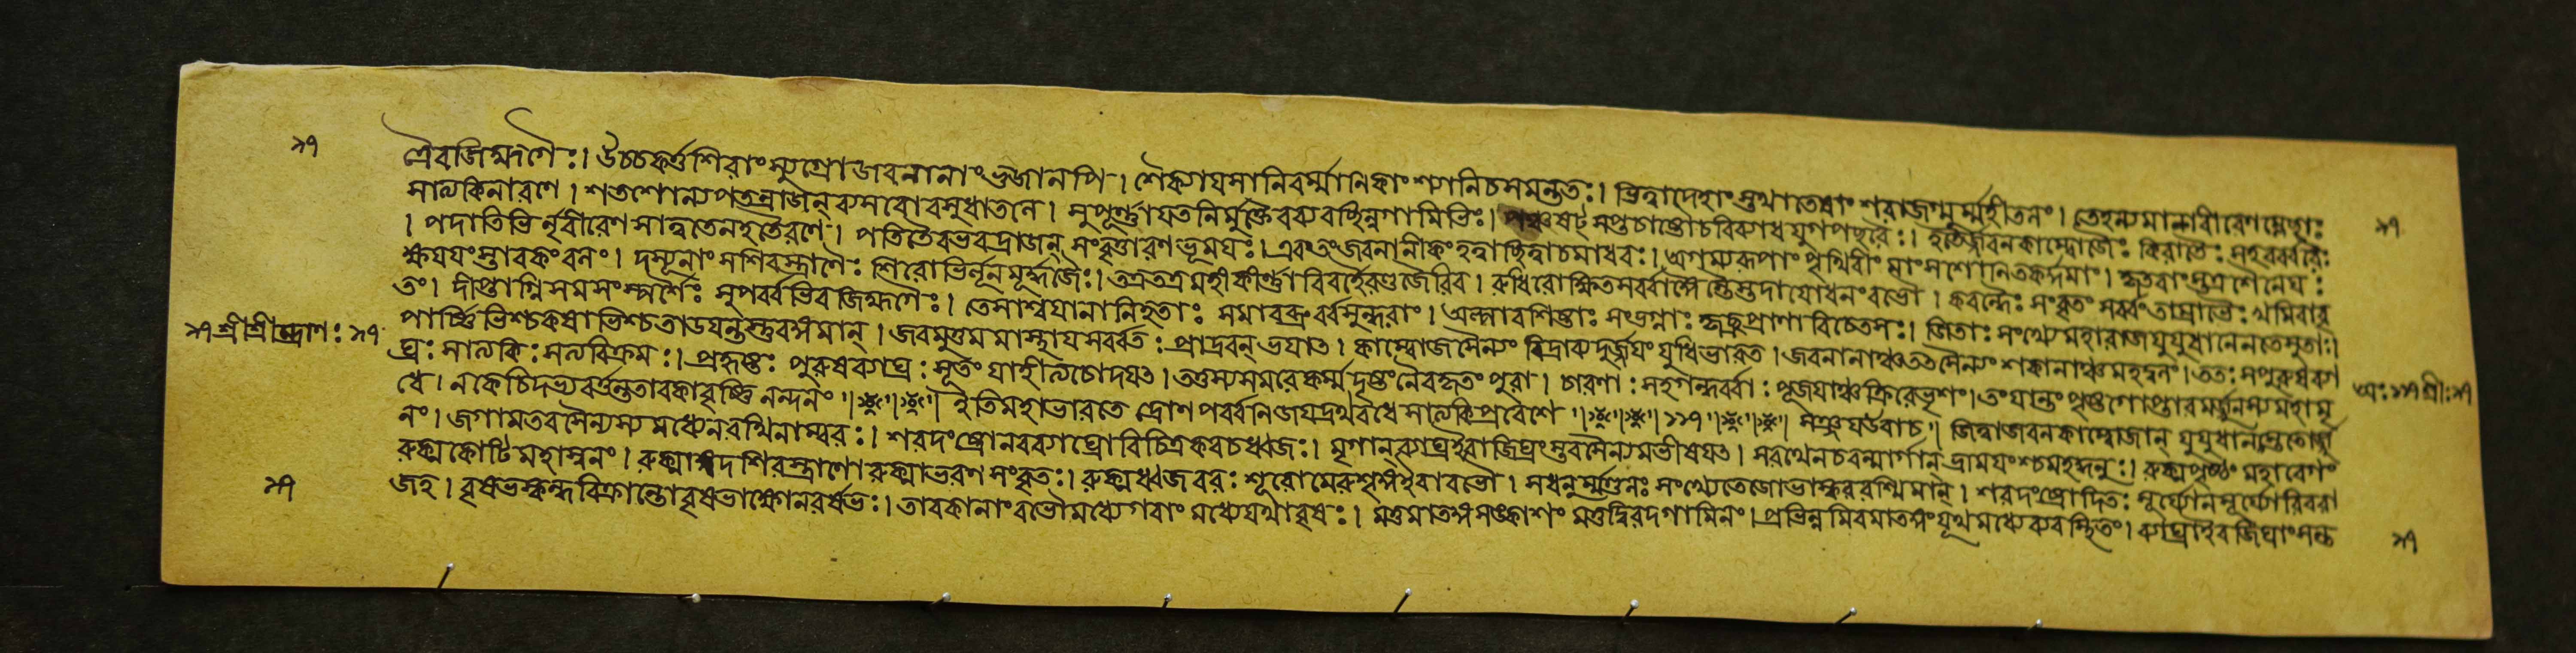 ত্রৈবজিহ্মগৈঃ। উচ্চকর্ত্তশিরাংস্যুগ্রোজবনানাংভুজানপি। শৈক্যাযসানিবর্ম্মানিকাংশ্যানিচসমন্ততঃ। ভিত্বাদেহাংস্তথাতেষাং শরাজগ্মুর্ম্মহীতনং। তেহন্যমানাবীরেণম্লেচ্ছাঃ
সাত্যকিনারণে। শতশোন্যপতন্রাজন্ ব্যসবোবসুধাতনে। সুপূর্ণাযতনির্মুক্তৈরব্যবচ্ছিন্নগামিভিঃ। পঞ্চষট্ সপ্তচাষ্টৌচবিব্যাধযুগপচ্ছরৈঃ। হতৈর্জবনকাম্বোজৈঃ কিরাতৈঃ সহবর্ব্বরৈঃ
। পদাতিভির্নৃবীরেণ সাত্বতেনহতৈরণে। পতিতৈরভবদ্রাজন্ সংবৃত্তারণভূমযঃ। এবংতংজবনানীকংহত্বাচ্ছিত্বাচমাধবঃ। অগম্যরূপাং পৃথিবীং মাংসশোনিতকর্দ্দমাং। কৃতবাংস্তত্রশৈনেযঃ
ক্ষযযংস্তাবকংবনং। দস্যূনাং সশিরস্ত্রাণৈঃ শিরোভির্লূনমূর্দ্ধজৈঃ। তত্রতত্রমহীকীর্ণ্ণাবিবর্হৈরণ্ডজৈরিব। রুধিরোক্ষিতসর্ব্বাঙ্গৈস্তৈস্তদাযোধনংবভৌ। কবন্ধৈঃ সংবৃতং সর্ব্বংতাম্রাভ্রৈঃ খমিবাবৃ
তং। দীপ্তাগ্নিসমসংস্পর্শৈঃ সুপর্ব্বভিরজিহ্মগৈঃ। তেসাশ্বযানানিহতাঃ সমাবব্রুর্বসুন্ধরাং। অল্পাবশিষ্টাঃ সংভগ্নাঃ কৃচ্ছ্রপ্রাণাবিচেতসঃ। জিতাঃ সংখ্যেমহারাজযুযুধানেনতেসুতাঃ।
পার্ষ্ণিভিশ্চকষাভিশ্চতাডযন্তস্তুরঙ্গমান্। জবমুত্তমমাস্থাযসর্ব্বতঃ প্রাদ্রবন্ ভযাৎ। কাম্বোজসৈন্যং বিদ্রাব্যদুর্জ্জযংযুধিভারত। জবনানাঞ্চতৎসৈন্যং শকানাঞ্চমহদ্বনং। ততঃ সপুরুষব্যা
ঘ্রঃ সাত্যকিঃ সত্যবিক্রমঃ। প্রহৃষ্টঃ পুরুষব্যাঘ্রঃ সূতং যাহীত্যচোদযৎ। তত্তস্যসমরেকর্ম্মদৃষ্টংনৈবহৃতংপুরা। চারণাঃ সহগন্ধর্ব্বাঃ পূজযাঞ্চক্রিরেভৃশং। তংযান্তংপৃষ্ঠগোপ্তারমর্জ্জুনস্যমহামৃ
ধে। নকেচিদভ্যবর্ত্তন্ততাবকাবৃষ্ণিনন্দনং॥ ইতিমহাভারতে দ্রোণপর্ব্বনিজযদ্রথবধে সাত্যকিপ্রবেশে॥ ১১৭॥ সঞ্জযউবাচ॥ জিত্বাজবনকাম্বোজান্ যুযুধানস্ততোর্জ্জু
নং। জগামতবসৈন্যস্য মধ্যেনরথিনাম্বরঃ। শরদংষ্ট্রোনরব্যাঘ্রোবিচিত্রকবচধ্বজঃ। মৃগান্ ব্যাঘ্রইবাজিঘ্রংস্তবসৈন্যমভীষযৎ। সরথেনচরন্মার্গান্ ভ্রাময়ংশ্চমহদ্ধনুঃ। রুক্মপৃষ্ঠং মহাবেগং
রুক্মকোটিমহাস্বনং। রুক্মাঙ্গদশিরস্ত্রাণোরুক্মাভরণসংবৃতঃ। রুক্মধ্বজবরঃ শূরোমেরুশৃঙ্গইবাবভৌ। সধনুর্ম্মণ্ডলঃ সংখ্যেতেজোভাস্কররশ্মিমান্। শরদংষ্ট্রোদিতঃ সূর্য্যোনৃসূর্য্যোবিররা
জহ। বৃষভস্কন্ধবিক্রান্তোবৃষভাক্ষোনরর্ষভঃ। তাবকানাংবভৌমধ্যেগবাং মধ্যেযথাবৃষঃ। মত্তমাতঙ্গসঙ্কাশং মত্তদ্বিরদগামিনং। প্রভিন্নমিবমাতঙ্গংযূথমধ্যেব্যবস্থিতং। ব্যাঘ্রাইবজিঘাংসন্ত
৯৭ শ্রীশ্রীদ্রোণঃ ৯৭